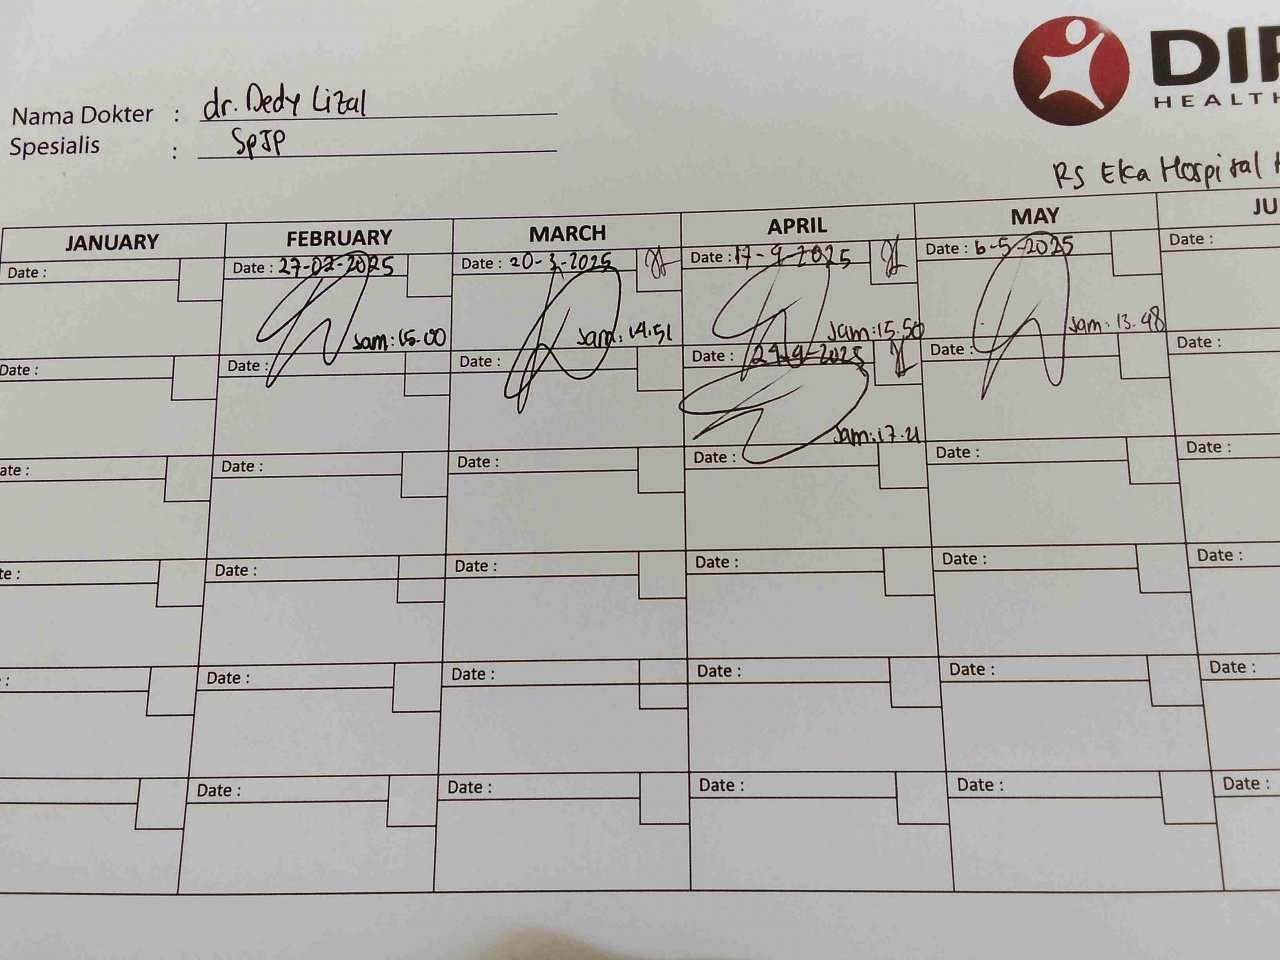 DI
HEALTH
Nama Dokter : dr. Dedy Lizal
Spesialis : SpJP
RS Eka Hospital
JANUARY FEBRUARY MARCH APRIL MAY JU
Date : Date : 27-02-2025 Date : 20-3-2025 Date : 17-4-2025 Date : 6-5-2025 Date :
Jam: 15.00 Jam: 14.51 Jam: 15.50 Jam: 13.48
Date : Date : Date : Date : 24-4-2025 Date : Date :
Jam: 17.21
ate : Date : Date : Date : Date : Date :
te : Date : Date : Date : Date : Date :
: Date : Date : Date : Date : Date :
Date : Date : Date : Date : Date :